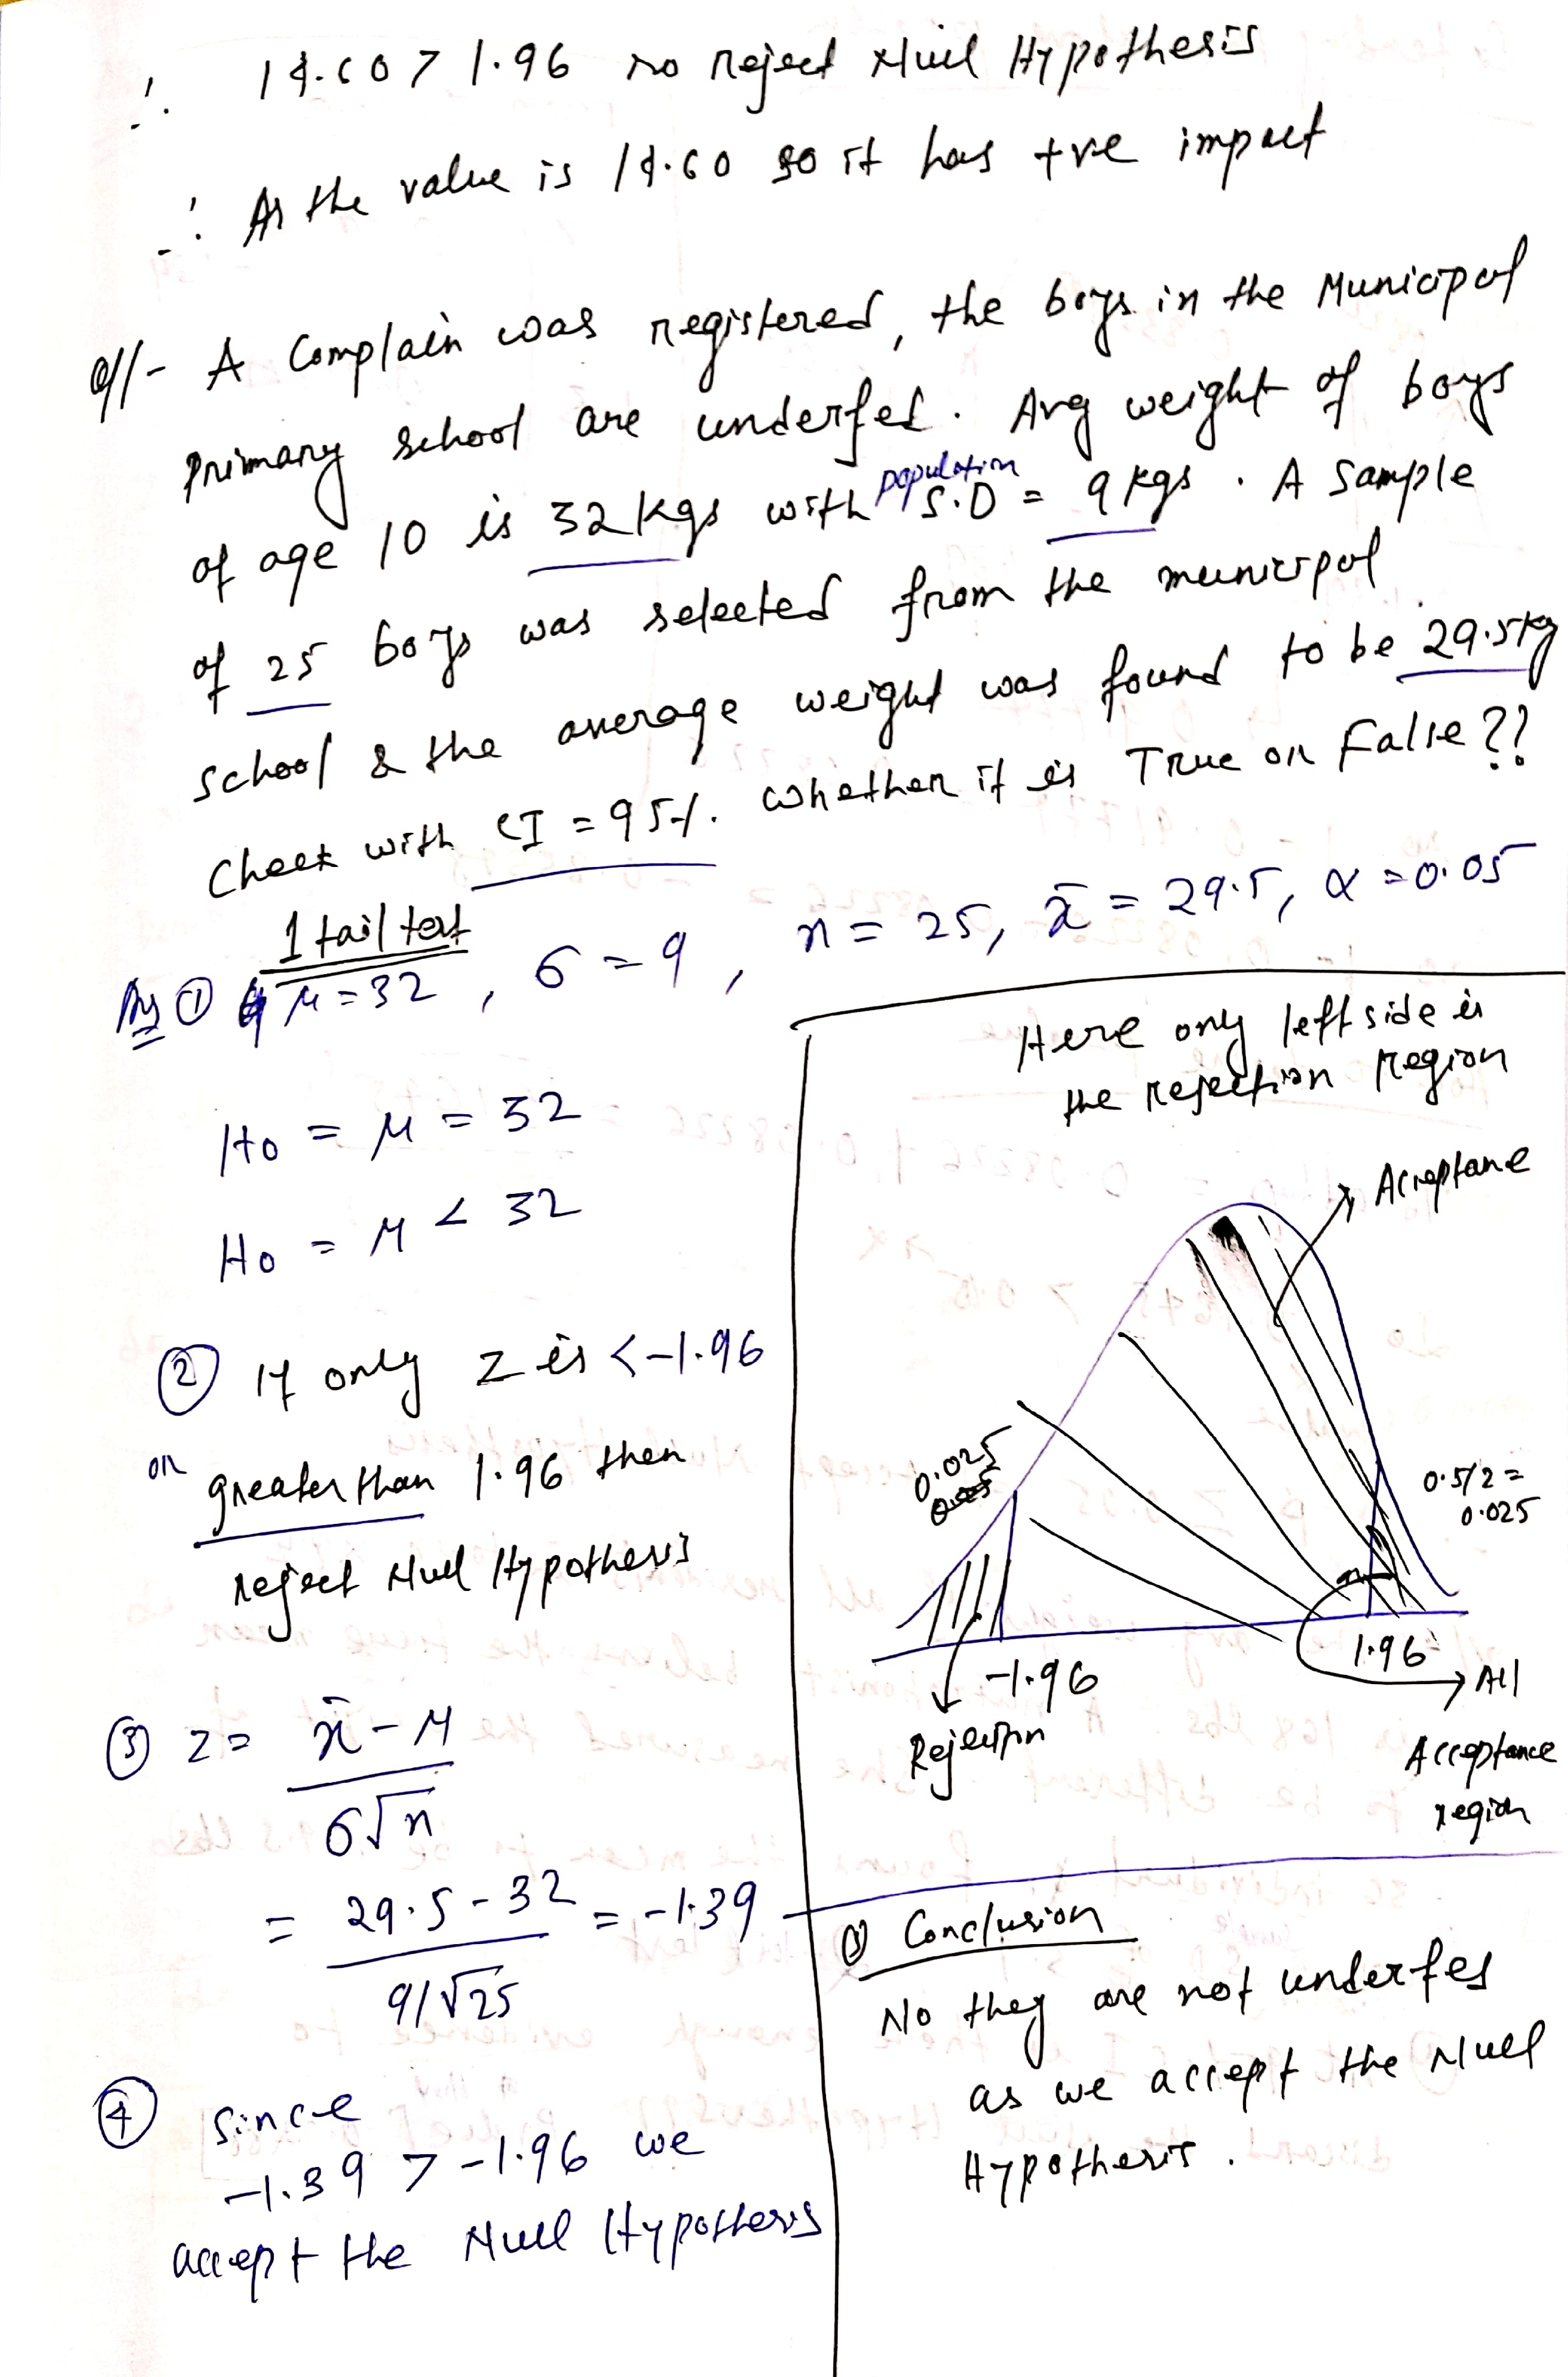 ∴ 14.60 > 1.96 so Reject Null Hypothesis
∴ As the value is 14.60 so it has +ve impact
Q// - A Complain was registered, the boys in the Municipal
Primary School are underfed. Avg weight of boys
population
of age 10 is 32 kgs with S.D = 9 kgs. A Sample
of 25 boys was selected from the municipal
school & the average weight was found to be 29.5kg
Check with CI = 95%. Whether it is True or False??
1 tail test
Ans ① μ = 32, σ = 9, n = 25, x̄ = 29.5, α = 0.05
H0 = μ = 32
H0 = μ < 32
② If only Z is < -1.96
or greater than 1.96 then
reject Null Hypothesis
③ Z = x̄ - μ
σ√n
= 29.5 - 32 = -1.39
9/√25
④ Since
-1.39 > -1.96 we
accept the Null Hypothesis
Here only left side is
the rejection region
Acceptane
0.025
0.5/2 =
0.025
-1.96
1.96
Rejection
All
Acceptance
region
Conclusion
No they are not underfed
as we accept the Null
Hypothesis.